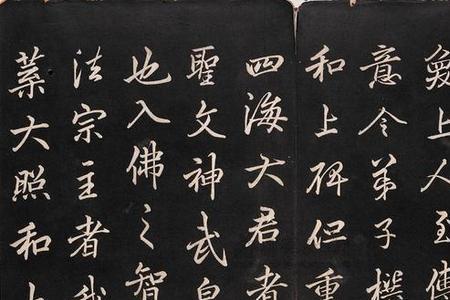 上人至傳
意令弟子撰
和上碑但重
四海大君者
聖文神武皇
也入佛之智
法宗主者我
業大照和上